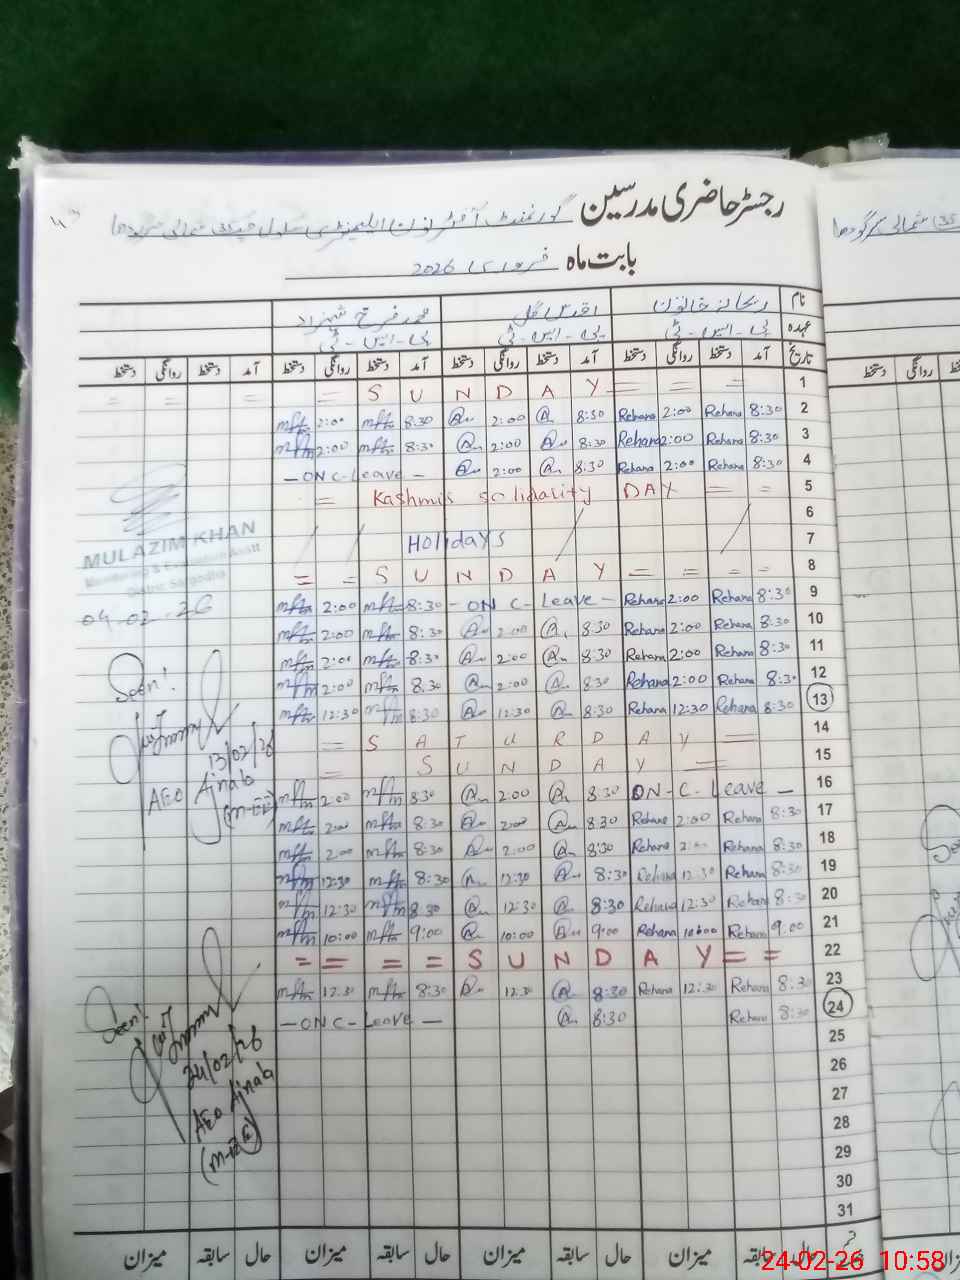 رجسٹر حاضری مدرسین گورنمنٹ
بابت ماہ فروری 2026
نام ریحانہ خاتون اقدس گل محمد فرخ شہزاد
عہدہ پی-ایس-ٹی پی-ایس-ٹی پی-ایس-ٹی
تاریخ آمد دستخط روانگی دستخط آمد دستخط روانگی دستخط آمد دستخط روانگی دستخط آمد دستخط روانگی دستخط
= = = = S U N D A Y = = = 1
2:00 8:30 2:00 8:30 Rehana 2:00 Rehana 8:30 2
2:00 8:30 2:00 8:30 Rehana 2:00 Rehana 8:30 3
- ON C-Leave - 2:00 8:30 Rehana 2:00 Rehana 8:30 4
= Kashmir Solidarity DAY = = 5
6
Holidays 7
= = S U N D A Y = = = = 8
2:00 8:30 - ON C- Leave - Rehana 2:00 Rehana 8:30 9
2:00 8:30 2:00 8:30 Rehana 2:00 Rehana 8:30 10
2:00 8:30 2:00 8:30 Rehana 2:00 Rehana 8:30 11
2:00 8:30 2:00 8:30 Rehana 2:00 Rehana 8:30 12
12:30 8:30 12:30 8:30 Rehana 12:30 Rehana 8:30 13
= S A T U R D A Y = 14
= S U N D A Y = 15
2:00 8:30 2:00 8:30 ON-C-Leave - 16
2:00 8:30 2:00 8:30 Rehana 2:00 Rehana 8:30 17
2:00 8:30 2:00 8:30 Rehana 2:00 Rehana 8:30 18
12:30 8:30 12:30 8:30 Rehana 12:30 Rehana 8:30 19
12:30 8:30 12:30 8:30 Rehana 12:30 Rehana 8:30 20
10:00 9:00 10:00 9:00 Rehana 10:00 Rehana 9:00 21
= = = = S U N D A Y = = 22
12:30 8:30 12:30 8:30 Rehana 12:30 Rehana 8:30 23
- ON C- Leave - 8:30 Rehana 8:30 24
25
26
27
28
29
30
31
حال سابقہ میزان حال سابقہ میزان حال سابقہ میزان حال سابقہ میزان
MULAZIM KHAN
Monitoring & Evaluation Asstt
District Sargodha
04-02-26
Seen!
13/02/26
AEO Ajnala
(M-EE)
Seen!
24/02/26
AEO Ajnala
(M-EE)
24-02-26 10:58